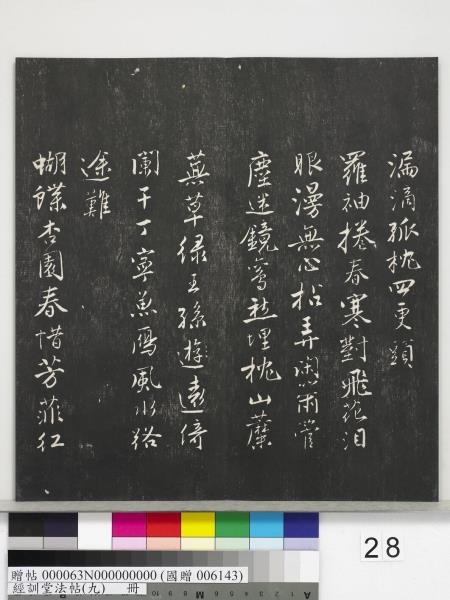 漏滴孤枕四更頭
羅袖捲春寒對飛花淚
眼漫無心拈弄閑簫管
塵迷鏡鸞愁埋枕山蘼
蕪草綠王孫遊遠倚
闌干丁寧魚鴈風水路
途難
蝴蝶杏園春惜芳菲紅
28
贈帖 000063N000000000 (國贈 006143)
經訓堂法帖(九) 冊